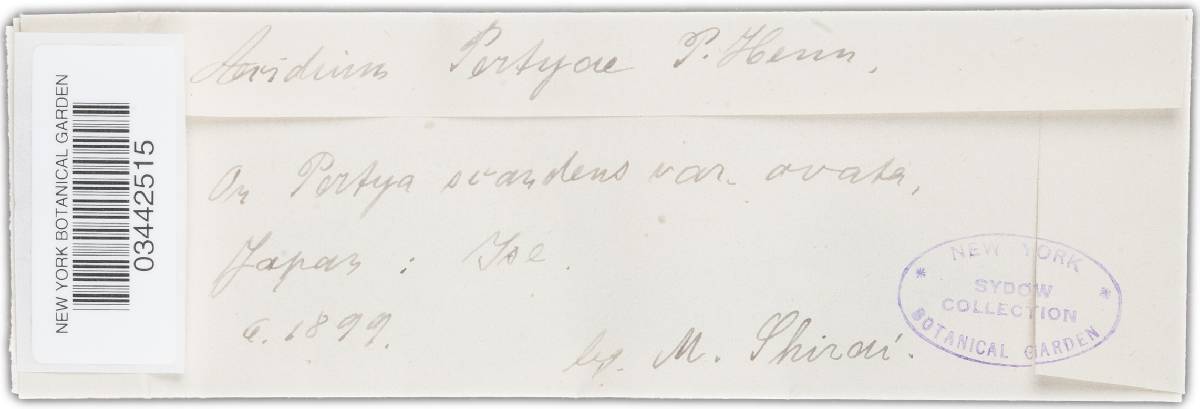 Aecidium Pertyae P. Henn.
On Pertya scandens var. ovata,
Japan : Ise.
6. 1899.
lg. M. Shirai.
NEW YORK BOTANICAL GARDEN
03442515
* NEW YORK *
SYDOW
COLLECTION
BOTANICAL GARDEN